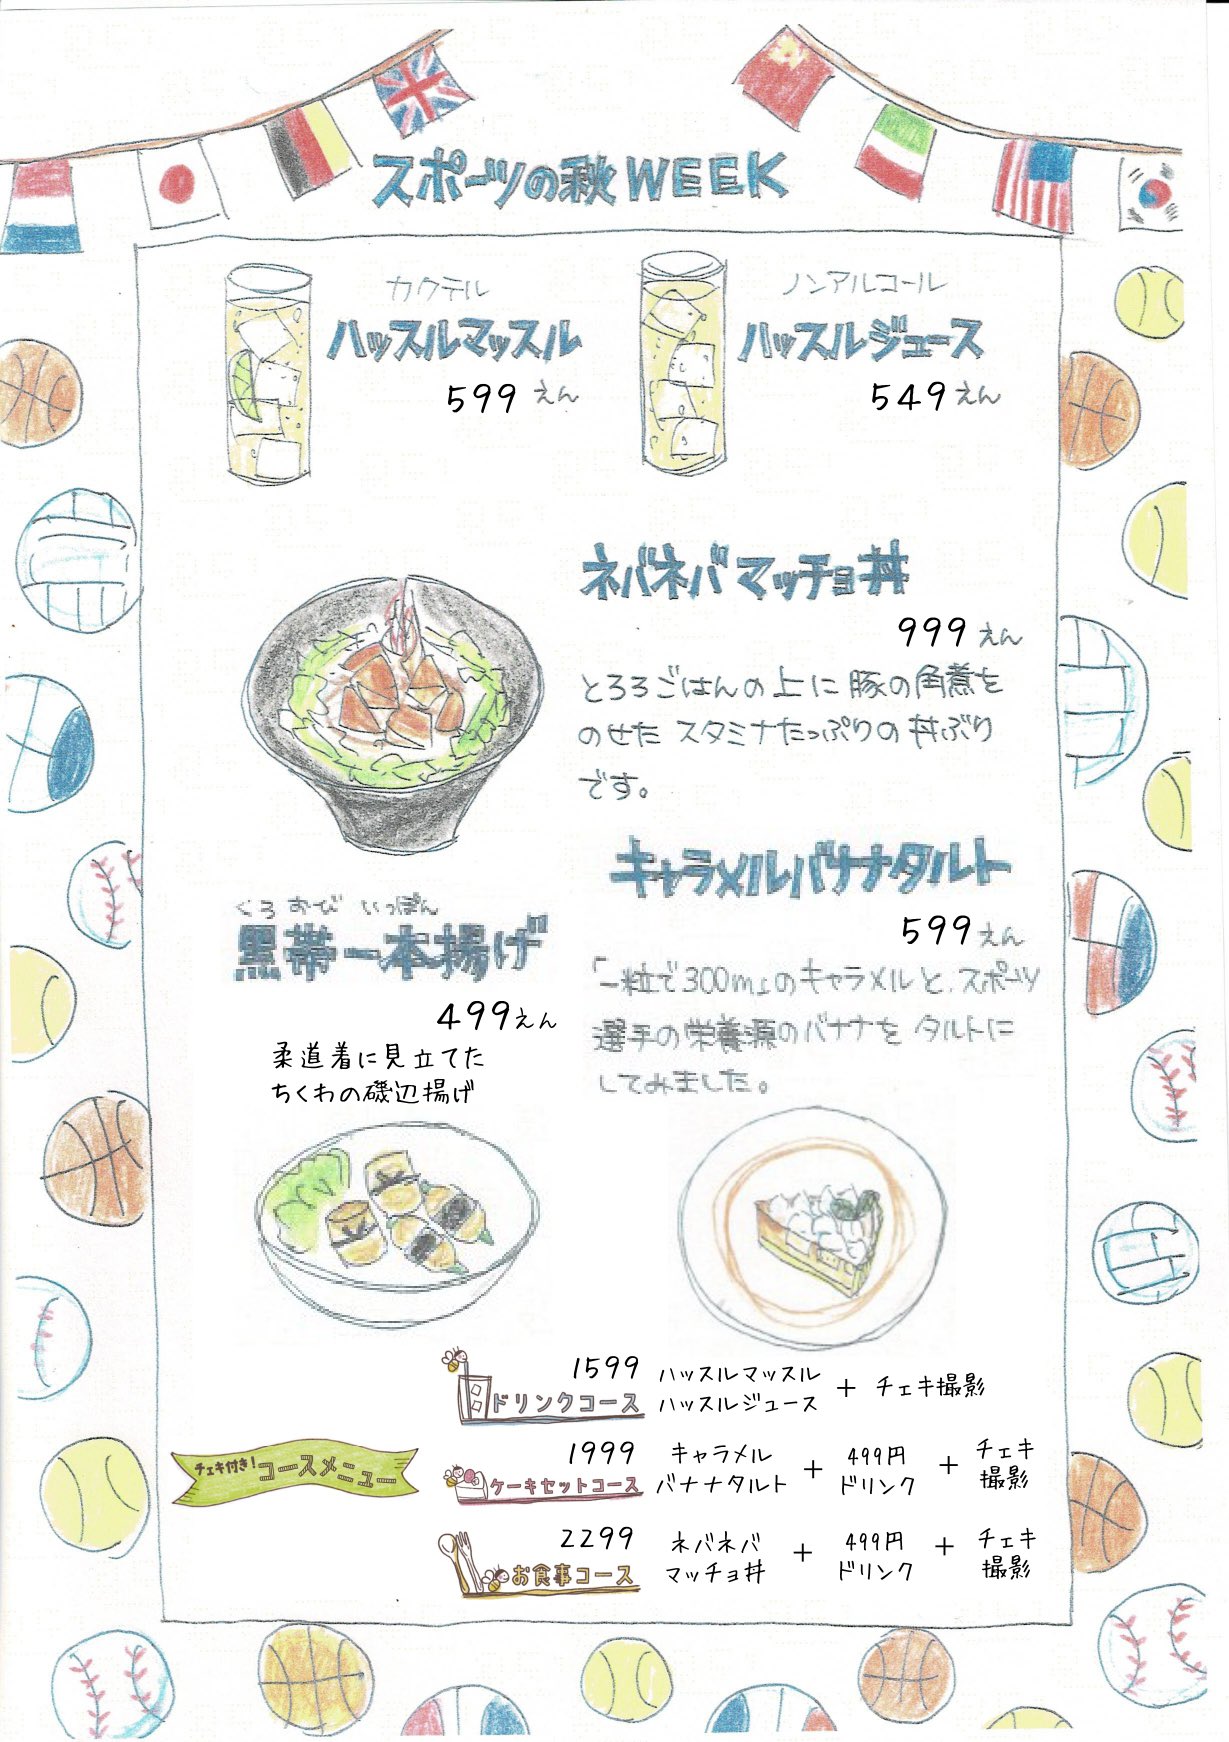 スポーツの秋WEEK
カクテル
ハッスルマッスル
599えん
ノンアルコール
ハッスルジュース
549えん
ネバネバマッチョ丼
999えん
とろろごはんの上に豚の角煮を
のせたスタミナたっぷりの丼ぶり
です。
キャラメルバナナタルト
599えん
「一粒で300m」のキャラメルと、スポーツ
選手の栄養源のバナナをタルトに
してみました。
くろおび いっぽん
黒帯一本揚げ
499えん
柔道着に見立てた
ちくわの磯辺揚げ
チェキ付き!コースメニュー
1599
ドリンクコース
ハッスルマッスル
ハッスルジュース
+ チェキ撮影
1999
ケーキセットコース
キャラメル
バナナタルト
+
499円
ドリンク
+
チェキ
撮影
2299
お食事コース
ネバネバ
マッチョ丼
+
499円
ドリンク
+
チェキ
撮影